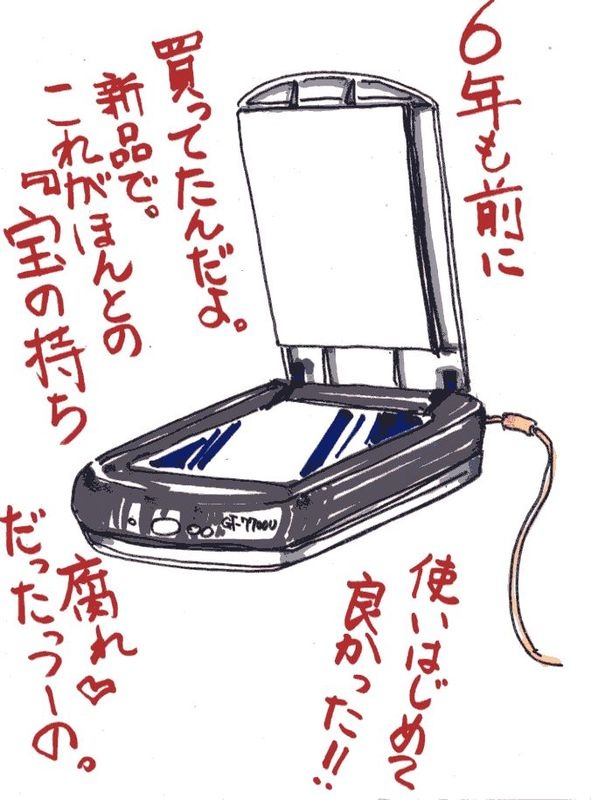 6年も前に
買ってたんだよ。
新品で。
これがほんとの
『宝の持ち
腐れ♡
だったっつーの。
使いはじめて
良かった!!
GT-7700U